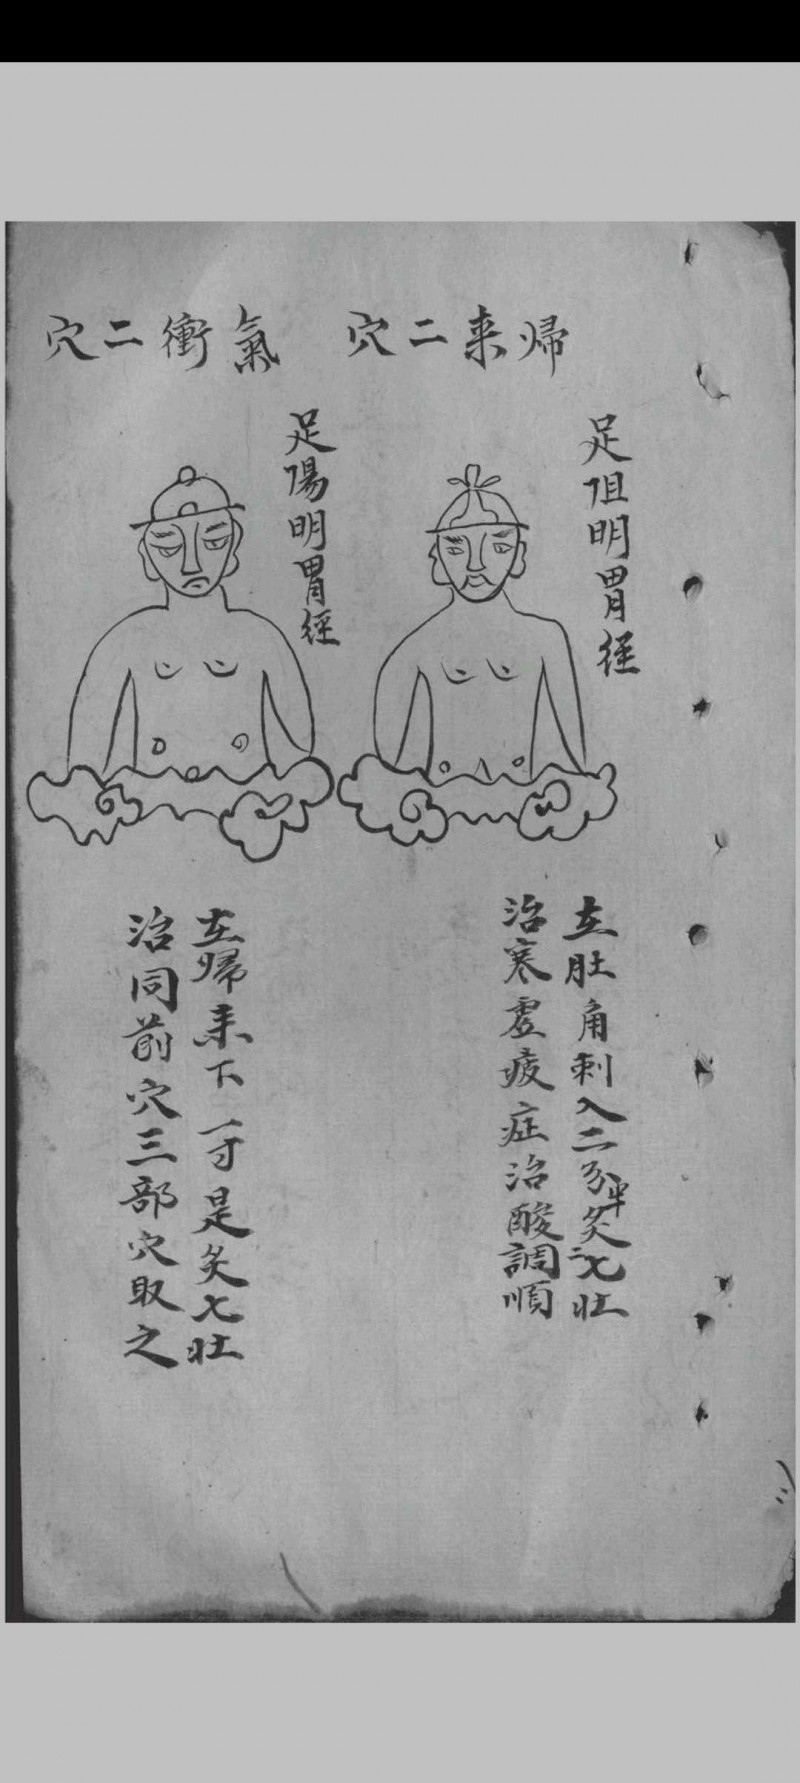 歸来二穴
足阻明胃徑
在肚角刺入二分半灸二七壯
治寒虛疲症治酸調順
氣衝二穴
足陽明胃徑
在歸来下一寸是灸七壯
治同前穴三部穴取之